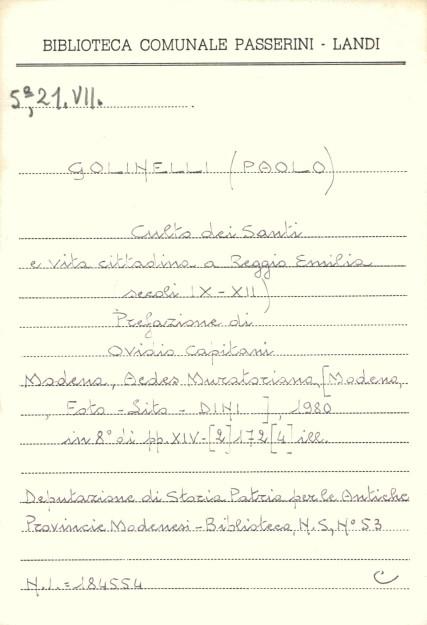 BIBLIOTECA COMUNALE PASSERINI - LANDI
5ª, 21. VII.
GOLINELLI (PAOLO)
Culto dei Santi
e vita cittadina a Reggio Emilia
(secoli IX - XII)
Prefazione di
Ovidio Capitani
Modena, Aedes Muratoriana, [Modena,
, Foto - Lito - DINI ], 1980
in 8° di pp. XIV - [2] 172 [4] ill.
Deputazione di Storia Patria per le Antiche
Provincie Modenesi - Biblioteca, N.S, N° 53
N.I. = 184554 C